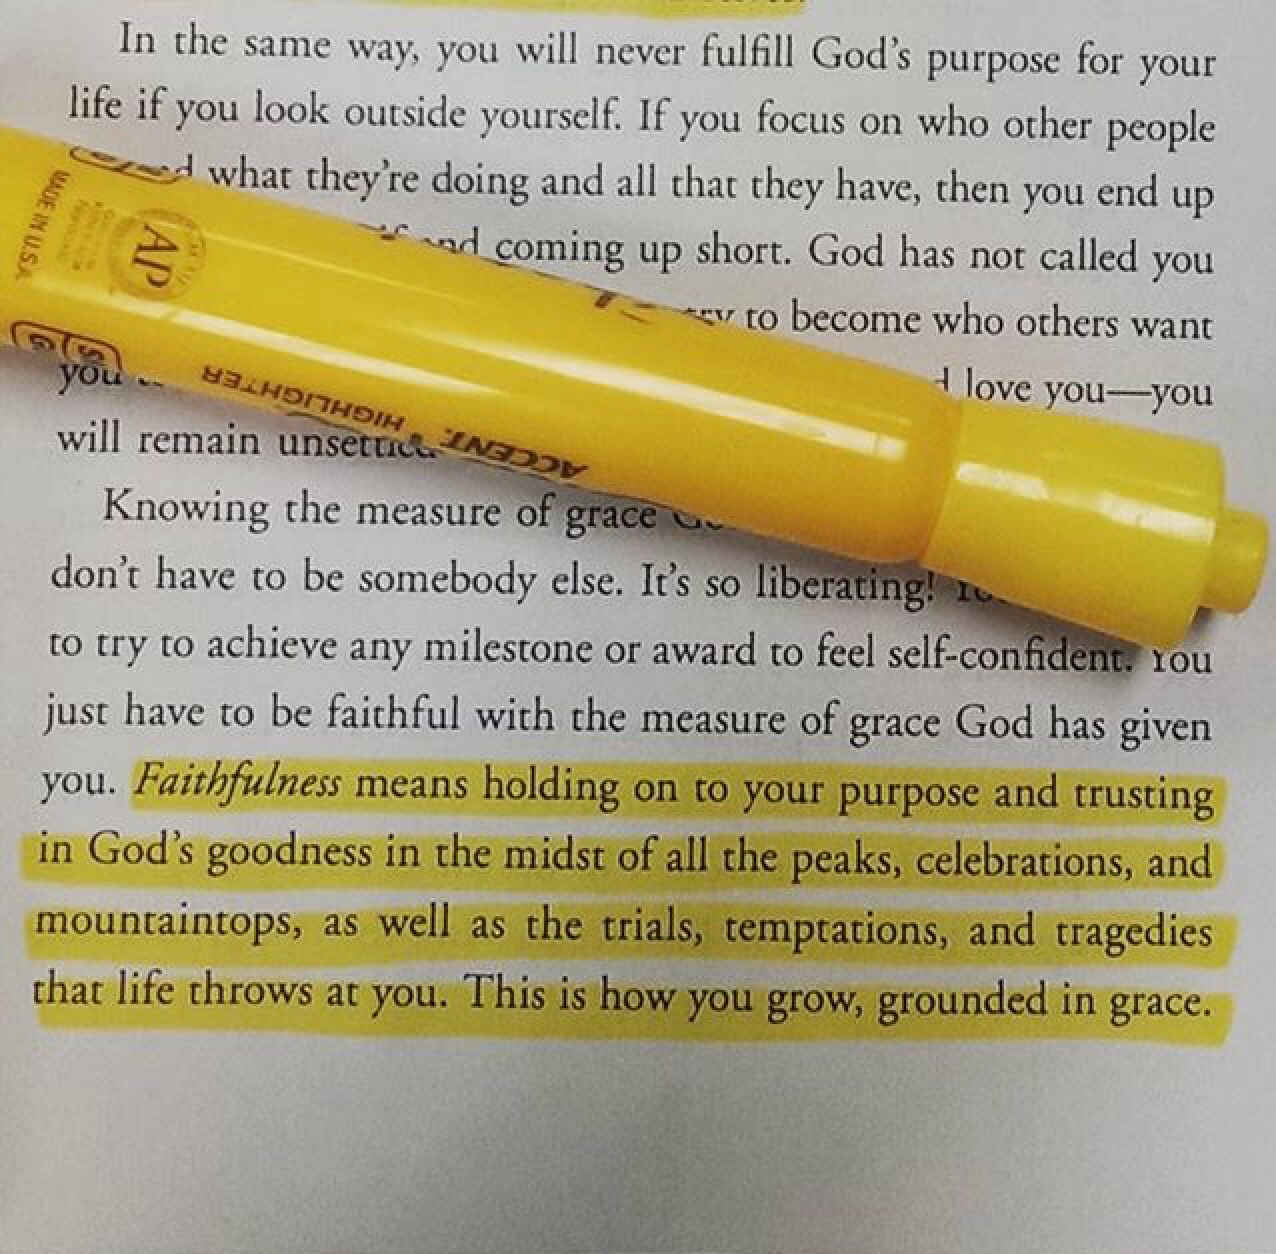 In the same way, you will never fulfill God's purpose for your
life if you look outside yourself. If you focus on who other people
what they're doing and all that they have, then you end up
coming up short. God has not called you
to become who others want
you love you—you
will remain
Knowing the measure of grace
don't have to be somebody else. It's so liberating!
to try to achieve any milestone or award to feel self-confident. You
just have to be faithful with the measure of grace God has given
you. Faithfulness means holding on to your purpose and trusting
in God's goodness in the midst of all the peaks, celebrations, and
mountaintops, as well as the trials, temptations, and tragedies
that life throws at you. This is how you grow, grounded in grace.
MADE IN U.S.A.
AP
ACCENT. HIGHLIGHTER